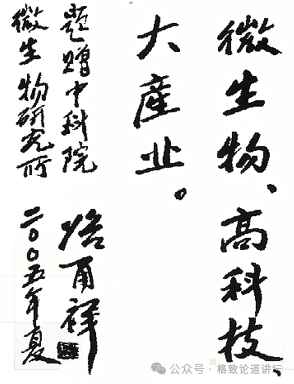 微生物、高科技、
大產业。
题赠中科院
微生物研究所
二〇〇五年夏
公众号·格致论道讲坛